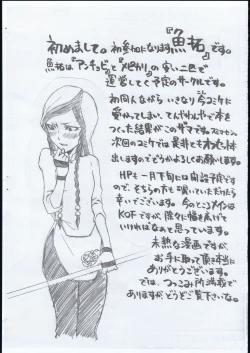 初めまして。初参加になります『魚拓』です。
魚拓は『アンチョビ』と『メヒカリ』の安い二匹で
運営してく予定のサークルです。
初同人ながらいきなり今コミケに
受かってしまい、てんやわんやで本を
つくった結果がこのザマです。スミマセン。
次回のコミケでは是非ともオフセット本
出しますのでどうかよろしくお願いします。
HPも一月下旬には開設予定です
ので、そちらの方も覗いていただけたら
幸いでございます。今のところメインは
KOFですが、徐々に幅を広げて
いければなぁと思っています。
未熟な漫画ですが、
お手に取って頂き本当に
ありがとうございます。
では、つっこみ所満載で
ありますが、どうぞご覧下さいな。